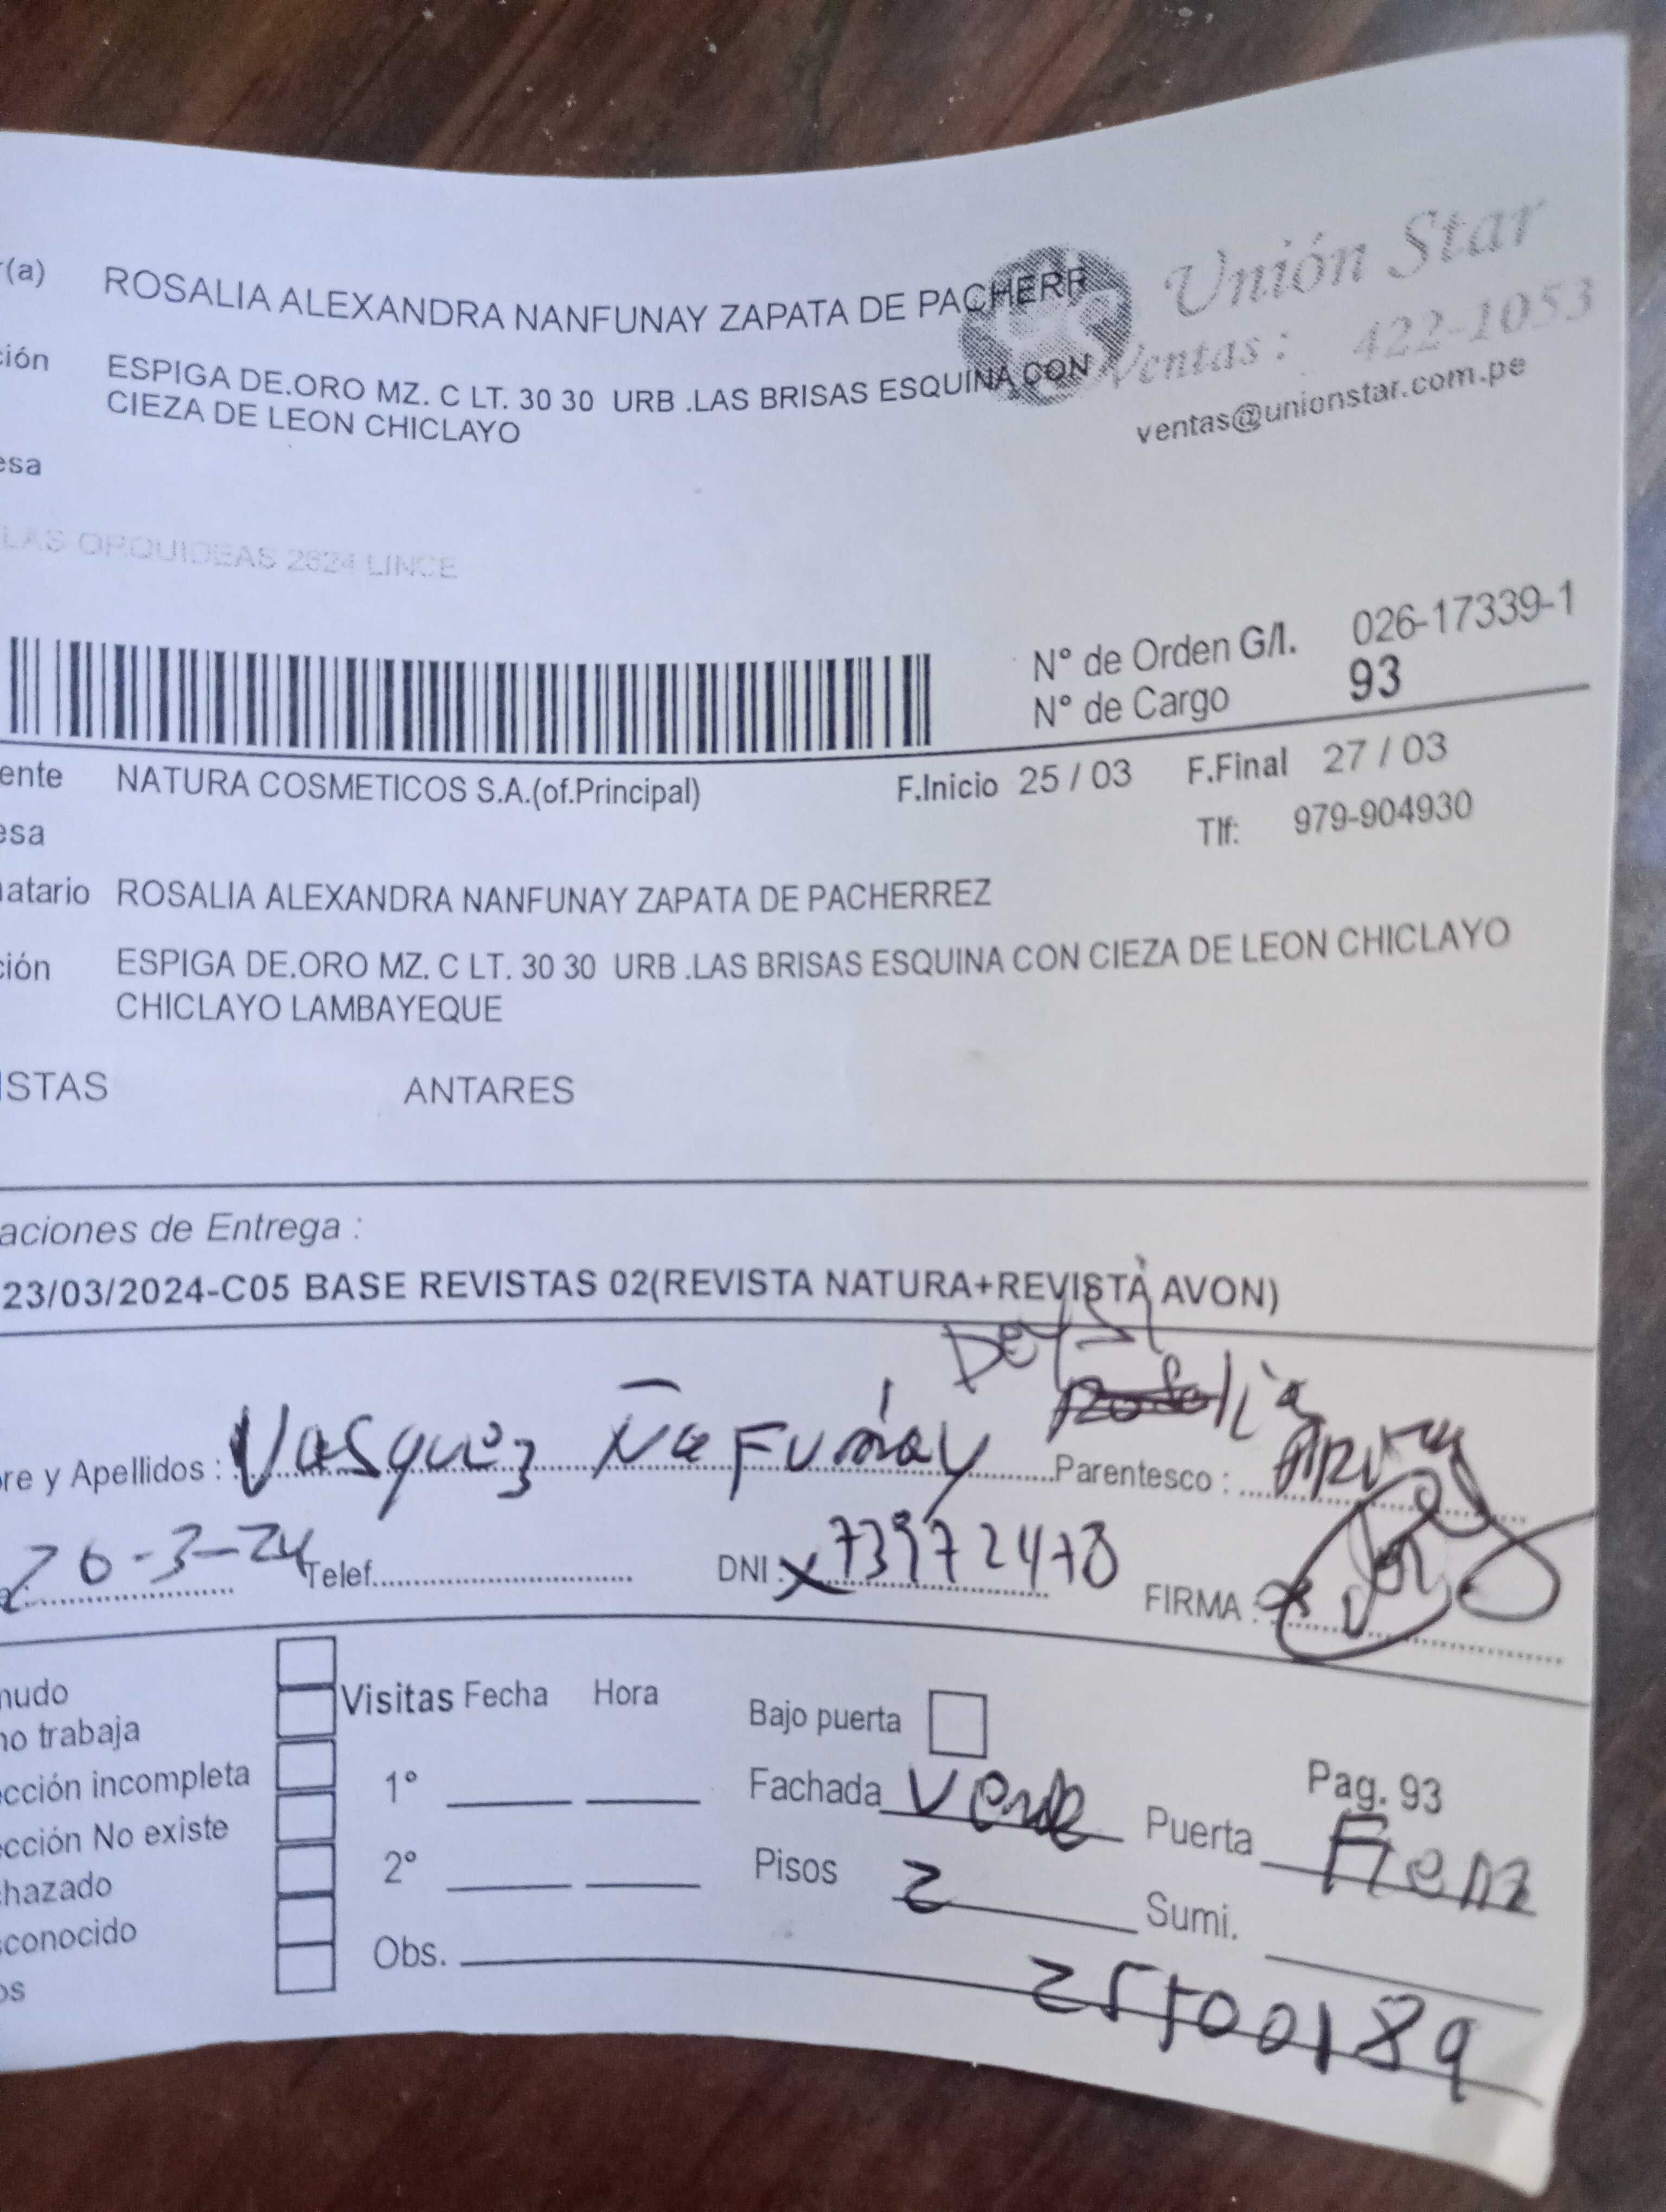 r(a) ROSALIA ALEXANDRA NANFUNAY ZAPATA DE PACHERR
Unión Star
Ventas: 422-1053
ventas@unionstar.com.pe
ción ESPIGA DE.ORO MZ. C LT. 30 30 URB .LAS BRISAS ESQUINA CON
CIEZA DE LEON CHICLAYO
esa
LAS ORQUIDEAS 2624 LINCE
N° de Orden G/I. 026-17339-1
N° de Cargo 93
ente NATURA COSMETICOS S.A.(of.Principal) F.Inicio 25 / 03 F.Final 27 / 03
esa Tlf: 979-904930
atario ROSALIA ALEXANDRA NANFUNAY ZAPATA DE PACHERREZ
ción ESPIGA DE.ORO MZ. C LT. 30 30 URB .LAS BRISAS ESQUINA CON CIEZA DE LEON CHICLAYO
CHICLAYO LAMBAYEQUE
ISTAS ANTARES
aciones de Entrega :
23/03/2024-C05 BASE REVISTAS 02(REVISTA NATURA+REVISTA AVON)
re y Apellidos : Vasquez Ñafuñay Parentesco :
26-3-24 Telef. DNI : 73972478 FIRMA :
nudo
Visitas Fecha Hora Bajo puerta
no trabaja
ección incompleta 1° Fachada Verde Puerta Pag. 93
ección No existe
hazado 2° Pisos 2 Sumi.
sconocido
Obs. 25500189
os